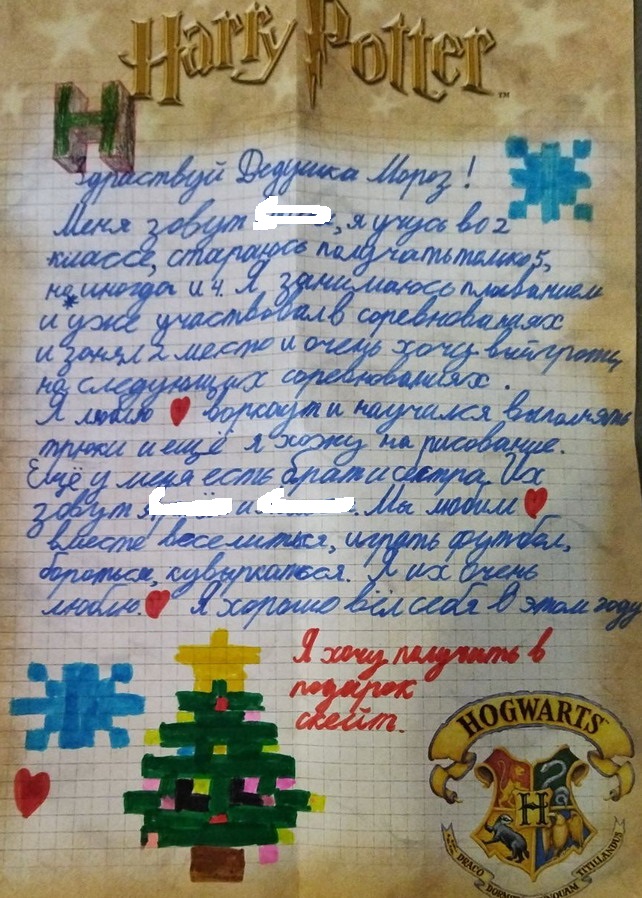 Harry Potter
TM
H
Здраствуй Дедушка Мороз!
Меня зовут , я учусь во 2
классе, стараюсь получать только 5,
но иногда и 4. Я занимаюсь плаванием
и уже участвовал в соревнованиях
и занял 2 место и очень хочу
на следующих соревнованиях.
Я люблю воркаут и научился выполнять
трюки и ещё я хожу на рисование.
Ещё у меня есть брат и сестра. Их
зовут и . Мы любим
вместе веселиться, играть футбол,
бороться, кувыркаться. Я их очень
люблю. Я хорошо вёл себя в этом году
Я хочу получить в
подарок
скейт.
HOGWARTS
H
DRACO DORMIENS NUNQUAM TITILLANDUS